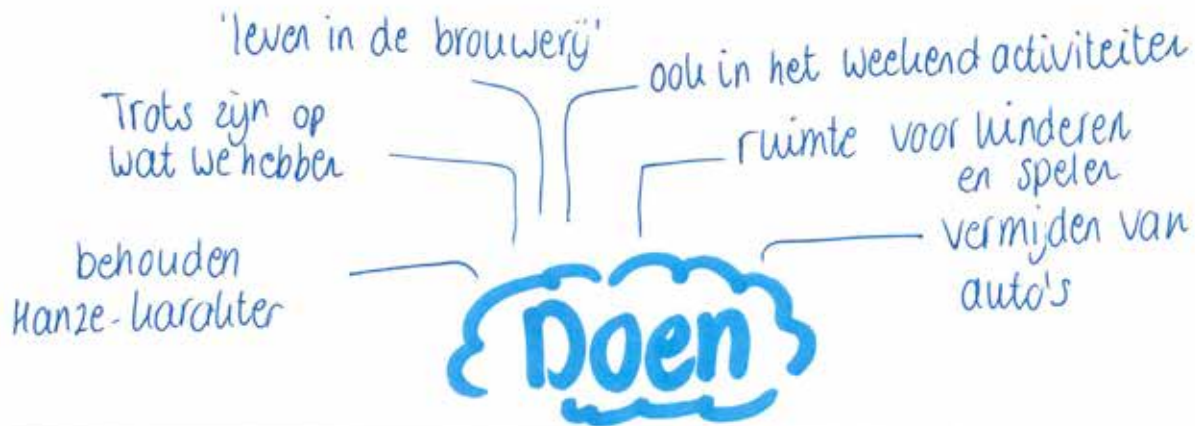 'leven in de brouwerij'
ook in het weekend activiteiten
Trots zijn op
wat we hebben
ruimte voor kinderen
en spelen
behouden
Hanze-karakter
vermijden van
auto's
Doen